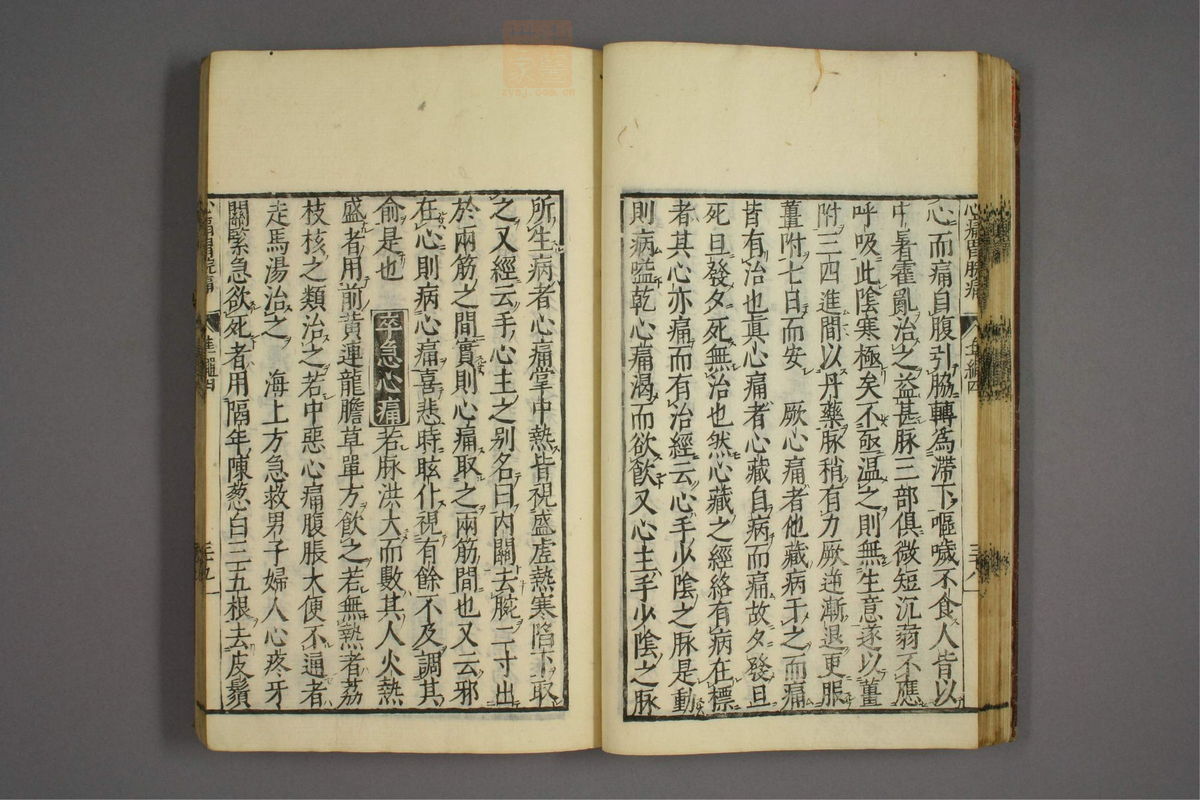 心而痛自腹引脇轉爲滯下嘔噦不食人皆以
中暑霍亂治之益甚脉三部俱微短沉弱不應
呼吸此陰寒極矣不亟温之則無生意遂以薑
附三四進間以丹藥脉稍有力厥逆漸退更服
薑附七日而安 厥心痛者他藏病干之而痛
皆有治也眞心痛者心藏自病而痛故夕發旦
死旦發夕死無治也然心藏之經絡有病在標
者其心亦痛而有治經云心手少陰之脉是動
則病嗌乾心痛渴而欲飲又心主手少陰之脉
所生病者心痛掌中熱皆視盛虚熱寒陷下取
之又經云手心主之别名曰内關去腕二寸出
於兩筋之間實則心痛取之兩筋間也又云邪
在心則病心痛喜悲時眩仆視有餘不及調其
俞是也 卒急心痛 若脉洪大而數其人火熱
盛者用前黄連龍膽草單方飲之若無熱者荔
枝核之類治之若中惡心痛腹脹大便不通者
走馬湯治之 海上方急救男子婦人心疼牙
關緊急欲死者用隔年陳葱白三五根去皮鬚
心痛胃脘痛
三十八
三十九